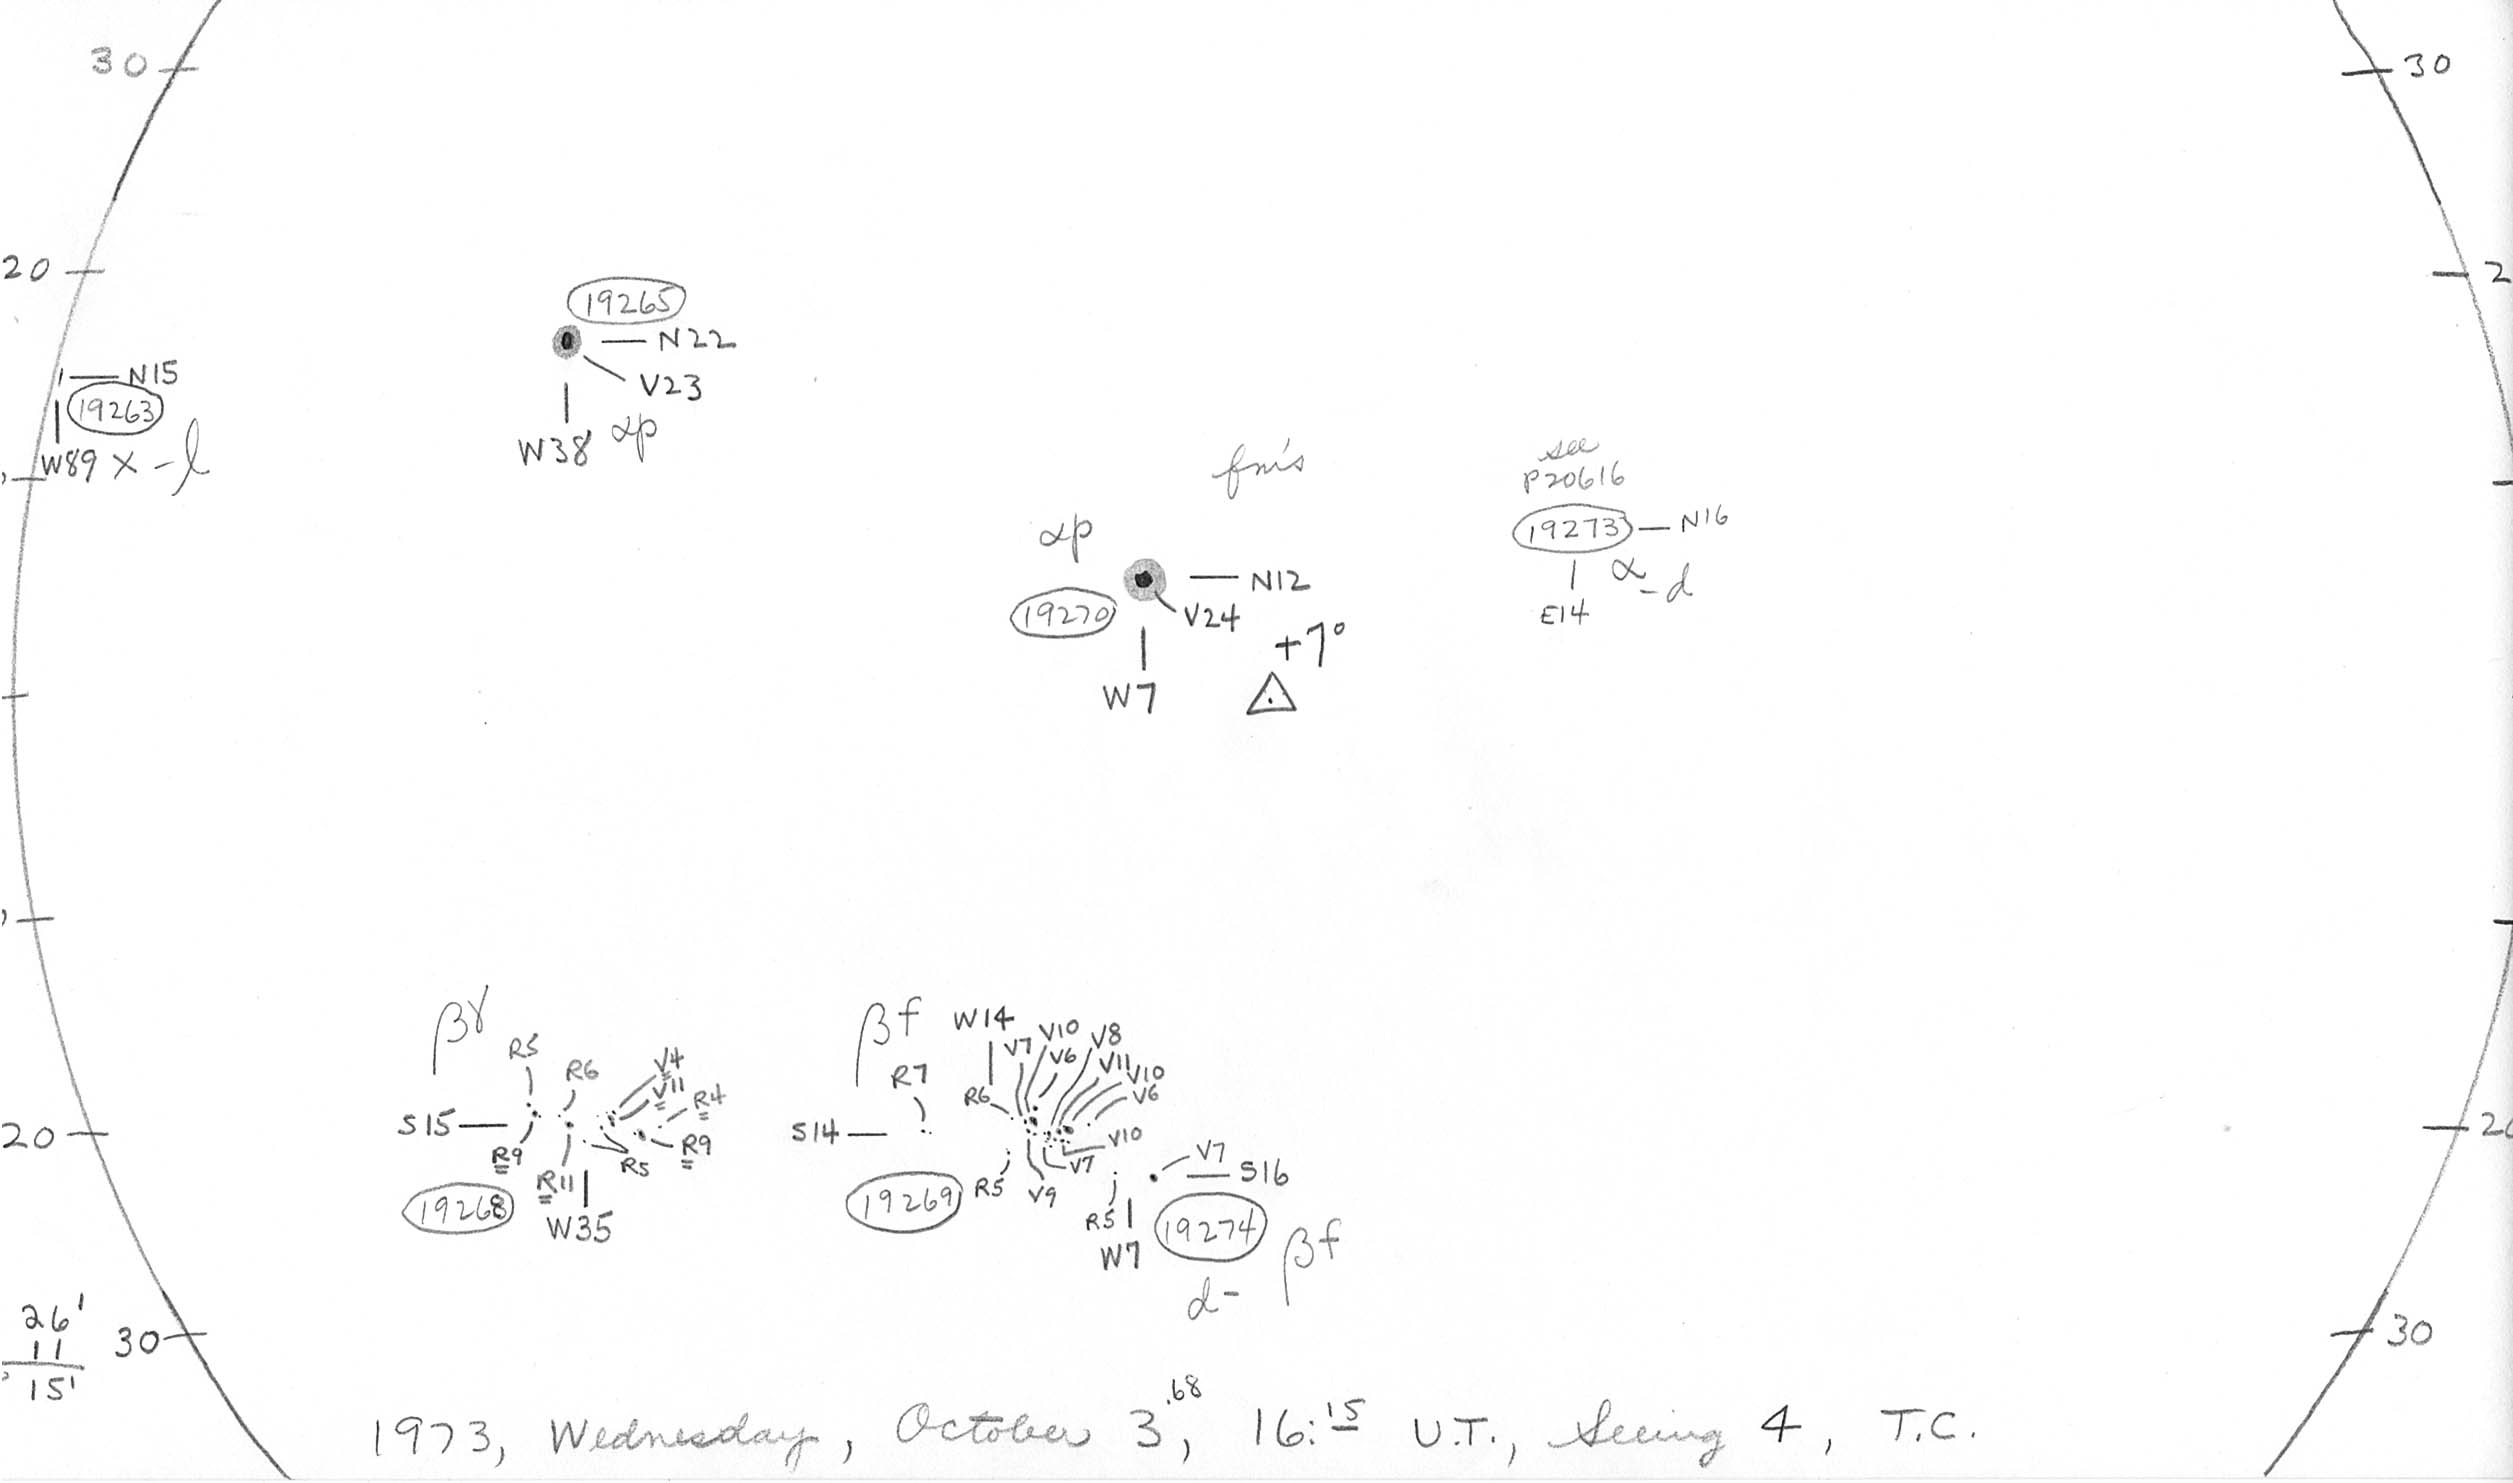 30
30
20
2
19265
N22
V23
W38 αp
N15
19263
W89 X -l
see
P20616
19273 N16
α
-d
E14
αp
N12
19270
V24
+7°
W7
βγ
R5
R6
V4
V11
R4
S15
R9
R9
R5
R11
19268
W35
βf
W14
V10
V8
V7
V6
V11
V10
R7
R6
V6
S14
V10
V7
V7
S16
R5
V9
19269
R5
19274
W7
βf
d-
20
20
26'
11
15'
30
30
1973, Wednesday, October 3.68, 16:15 U.T., Seeing 4, T.C.